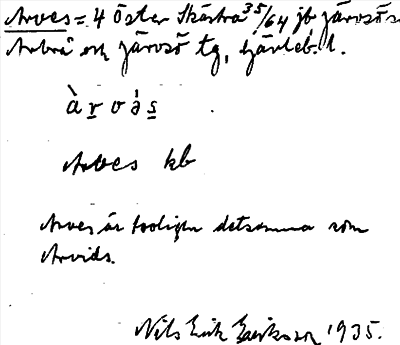 Arves = 4 Öster Skästra 35/64 jb Järvsö s
Arbrå och Järvsö tg, Gävleb. l.
à r v å s
Arves kb
Arves är troligen detsamma som
Arvids.
Nils Erik Eriksson 1935.